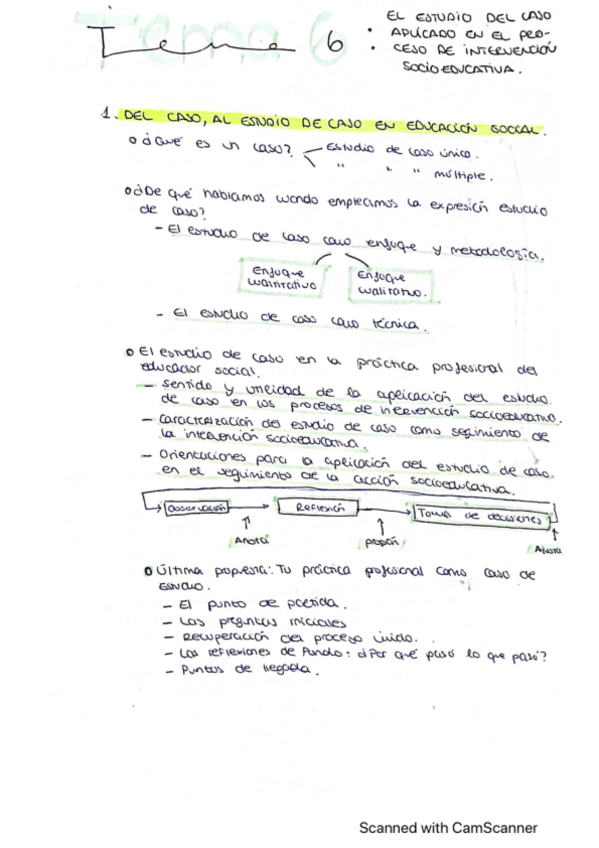 Tema 6
EL ESTUDIO DEL CASO
APLICADO EN EL PRO-
CESO DE INTERVENCIÓN
SOCIOEDUCATIVA.
1. DEL CASO, AL ESTUDIO DE CASO EN EDUCACIÓN SOCIAL.
¿Qué es un caso? Estudio de caso único.
" " " múltiple.
¿De qué hablamos cuando empleamos la expresión estudio
de caso?
- El estudio de caso como enfoque y metodología.
Enfoque
cualitativo.
- El estudio de caso como técnica.
El estudio de caso en la práctica profesional del
educador social.
- Sentido y utilidad de la aplicación del estudio
de caso en los procesos de intervención socioeducativa.
- Caracterización del estudio de caso como seguimiento de
la intervención socioeducativa.
- Orientaciones para la aplicación del estudio de caso
en el seguimiento de la acción socioeducativa.
Observación Reflexión Toma de decisiones
Anotar
Última propuesta: Tu práctica profesional como caso de
estudio.
- El punto de partida.
- Las preguntas iniciales
- Recuperación del proceso vivido.
- Las reflexiones de fondo: ¿Por qué pasó lo que pasó?
- Puntos de llegada.
Scanned with CamScanner